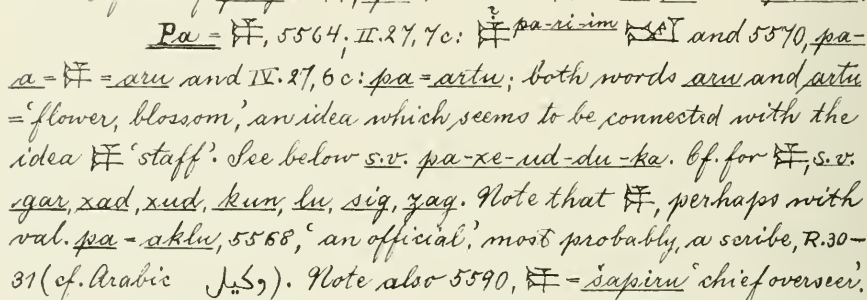 Pa = 𒉺, 5564; II. 27, 7c: 𒉺 ? pa-ri-im and 5570, pa-
a = 𒉺 = aru and IV. 27, 6c: pa = artu; both words aru and artu
= 'flower, blossom,' an idea which seems to be connected with the
idea 𒉺 'staff'. See below s.v. pa-xe-ud-du-ka. Cf. for 𒉺, s.v.
gar, xad, xud, kun, lu, sig, zag. Note that 𒉺, perhaps with
val. pa = aklu, 5568, 'an official,' most probably, a scribe, R. 30-
31 (cf. Arabic وكيل). Note also 5590, 𒉺 = šapiru 'chief overseer'.